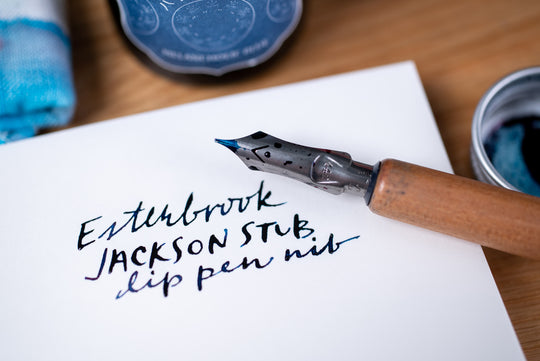 Esterbrook
JACKSON STUB
dip pen nib